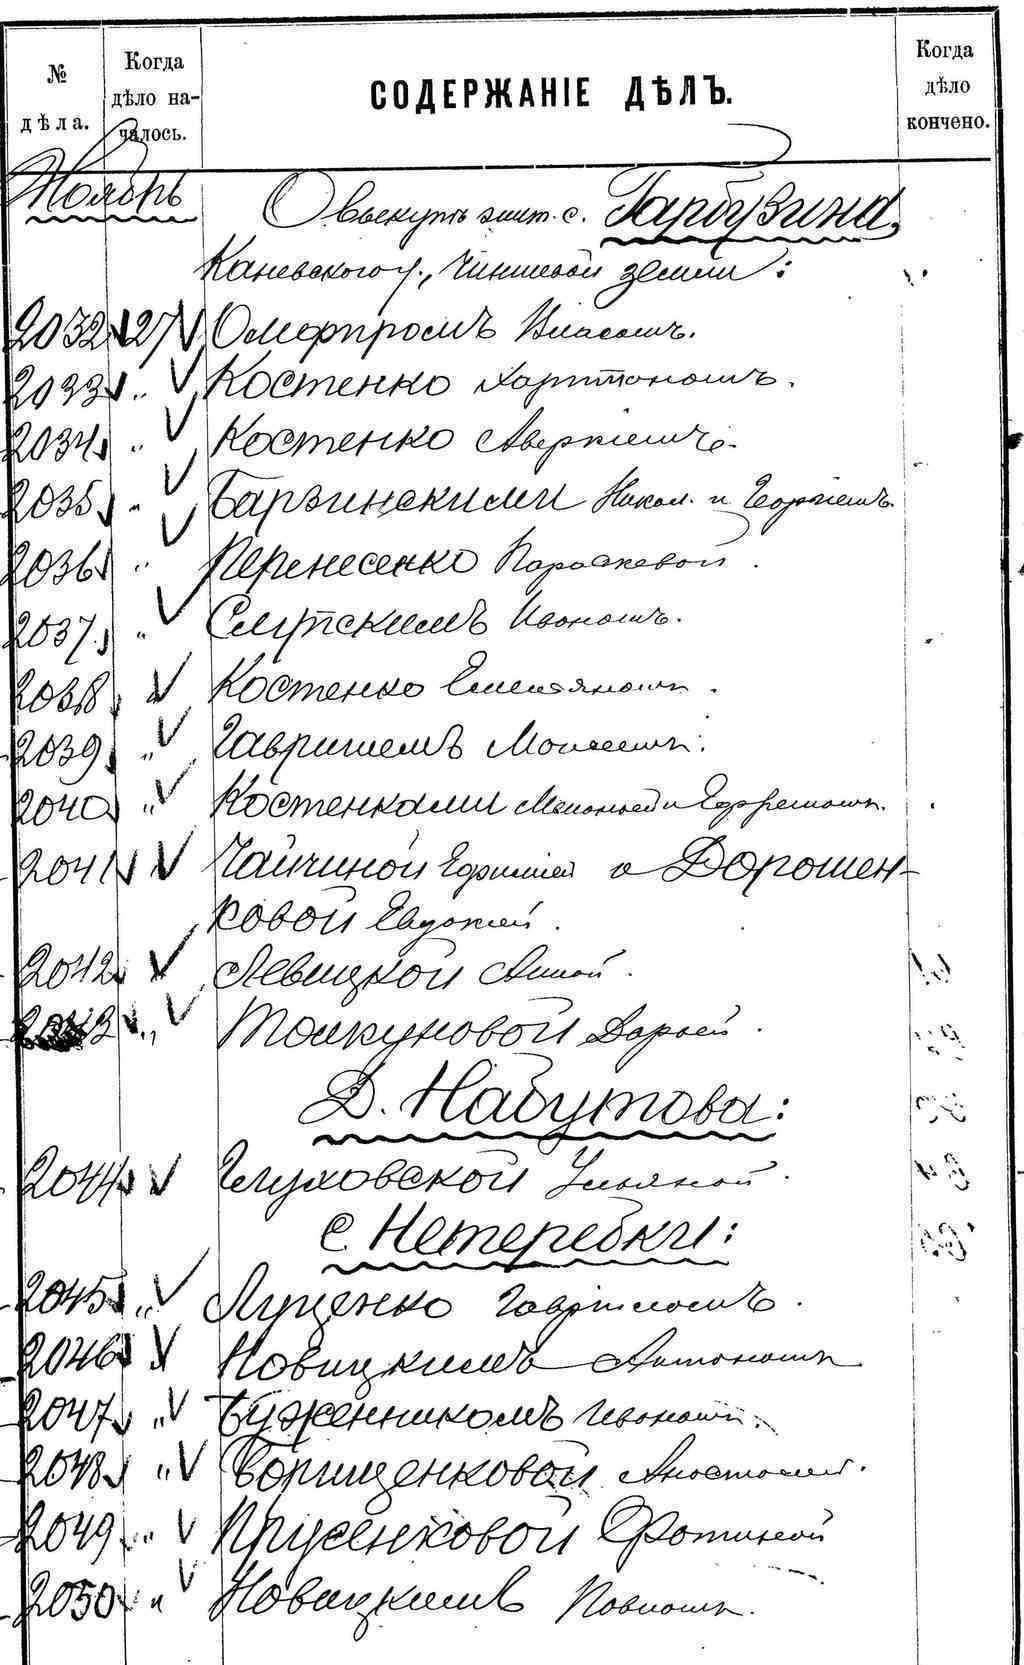 № дѣла.
Когда дѣло на-
чалось.
СОДЕРЖАНІЕ ДѢЛЪ.
Когда дѣло кончено.
Ноябрь
О выкупѣ жит. с. Гарбузина,
Каневскаго у., чиншевой земли:
2032 27 Онофріомъ Власомъ.
2033 „ Костенко Харитономъ.
2034 „ Костенко Аверкіемъ.
2035 „ Барзинскими Никол. и Георгіемъ.
2036 „ Перенесенко Параскевой.
2037 „ Слутскимъ Иваномъ.
2038 „ Костенко Емельяномъ.
2039 „ Гавришемъ Моисеемъ.
2040 „ Костенками Меланьей и Ефремомъ.
2041 „ Чайчиной Ефиміей и Дорошен-
ковой Евдокіей.
2042 „ Левицкой Анной.
2043 „ Толкуновой Дарьей.
Д. Набутова:
2044 „ Глуховской Ульяной.
С. Нетеребки:
2045 „ Луценко Гавріиломъ.
2046 „ Новицкимъ Антономъ
2047 „ Буженникомъ Иваномъ.
2048 „ Борищенковой Анастасіей.
2049 „ Прусенковой Фотиной
2050 „ Новицкимъ Павломъ.